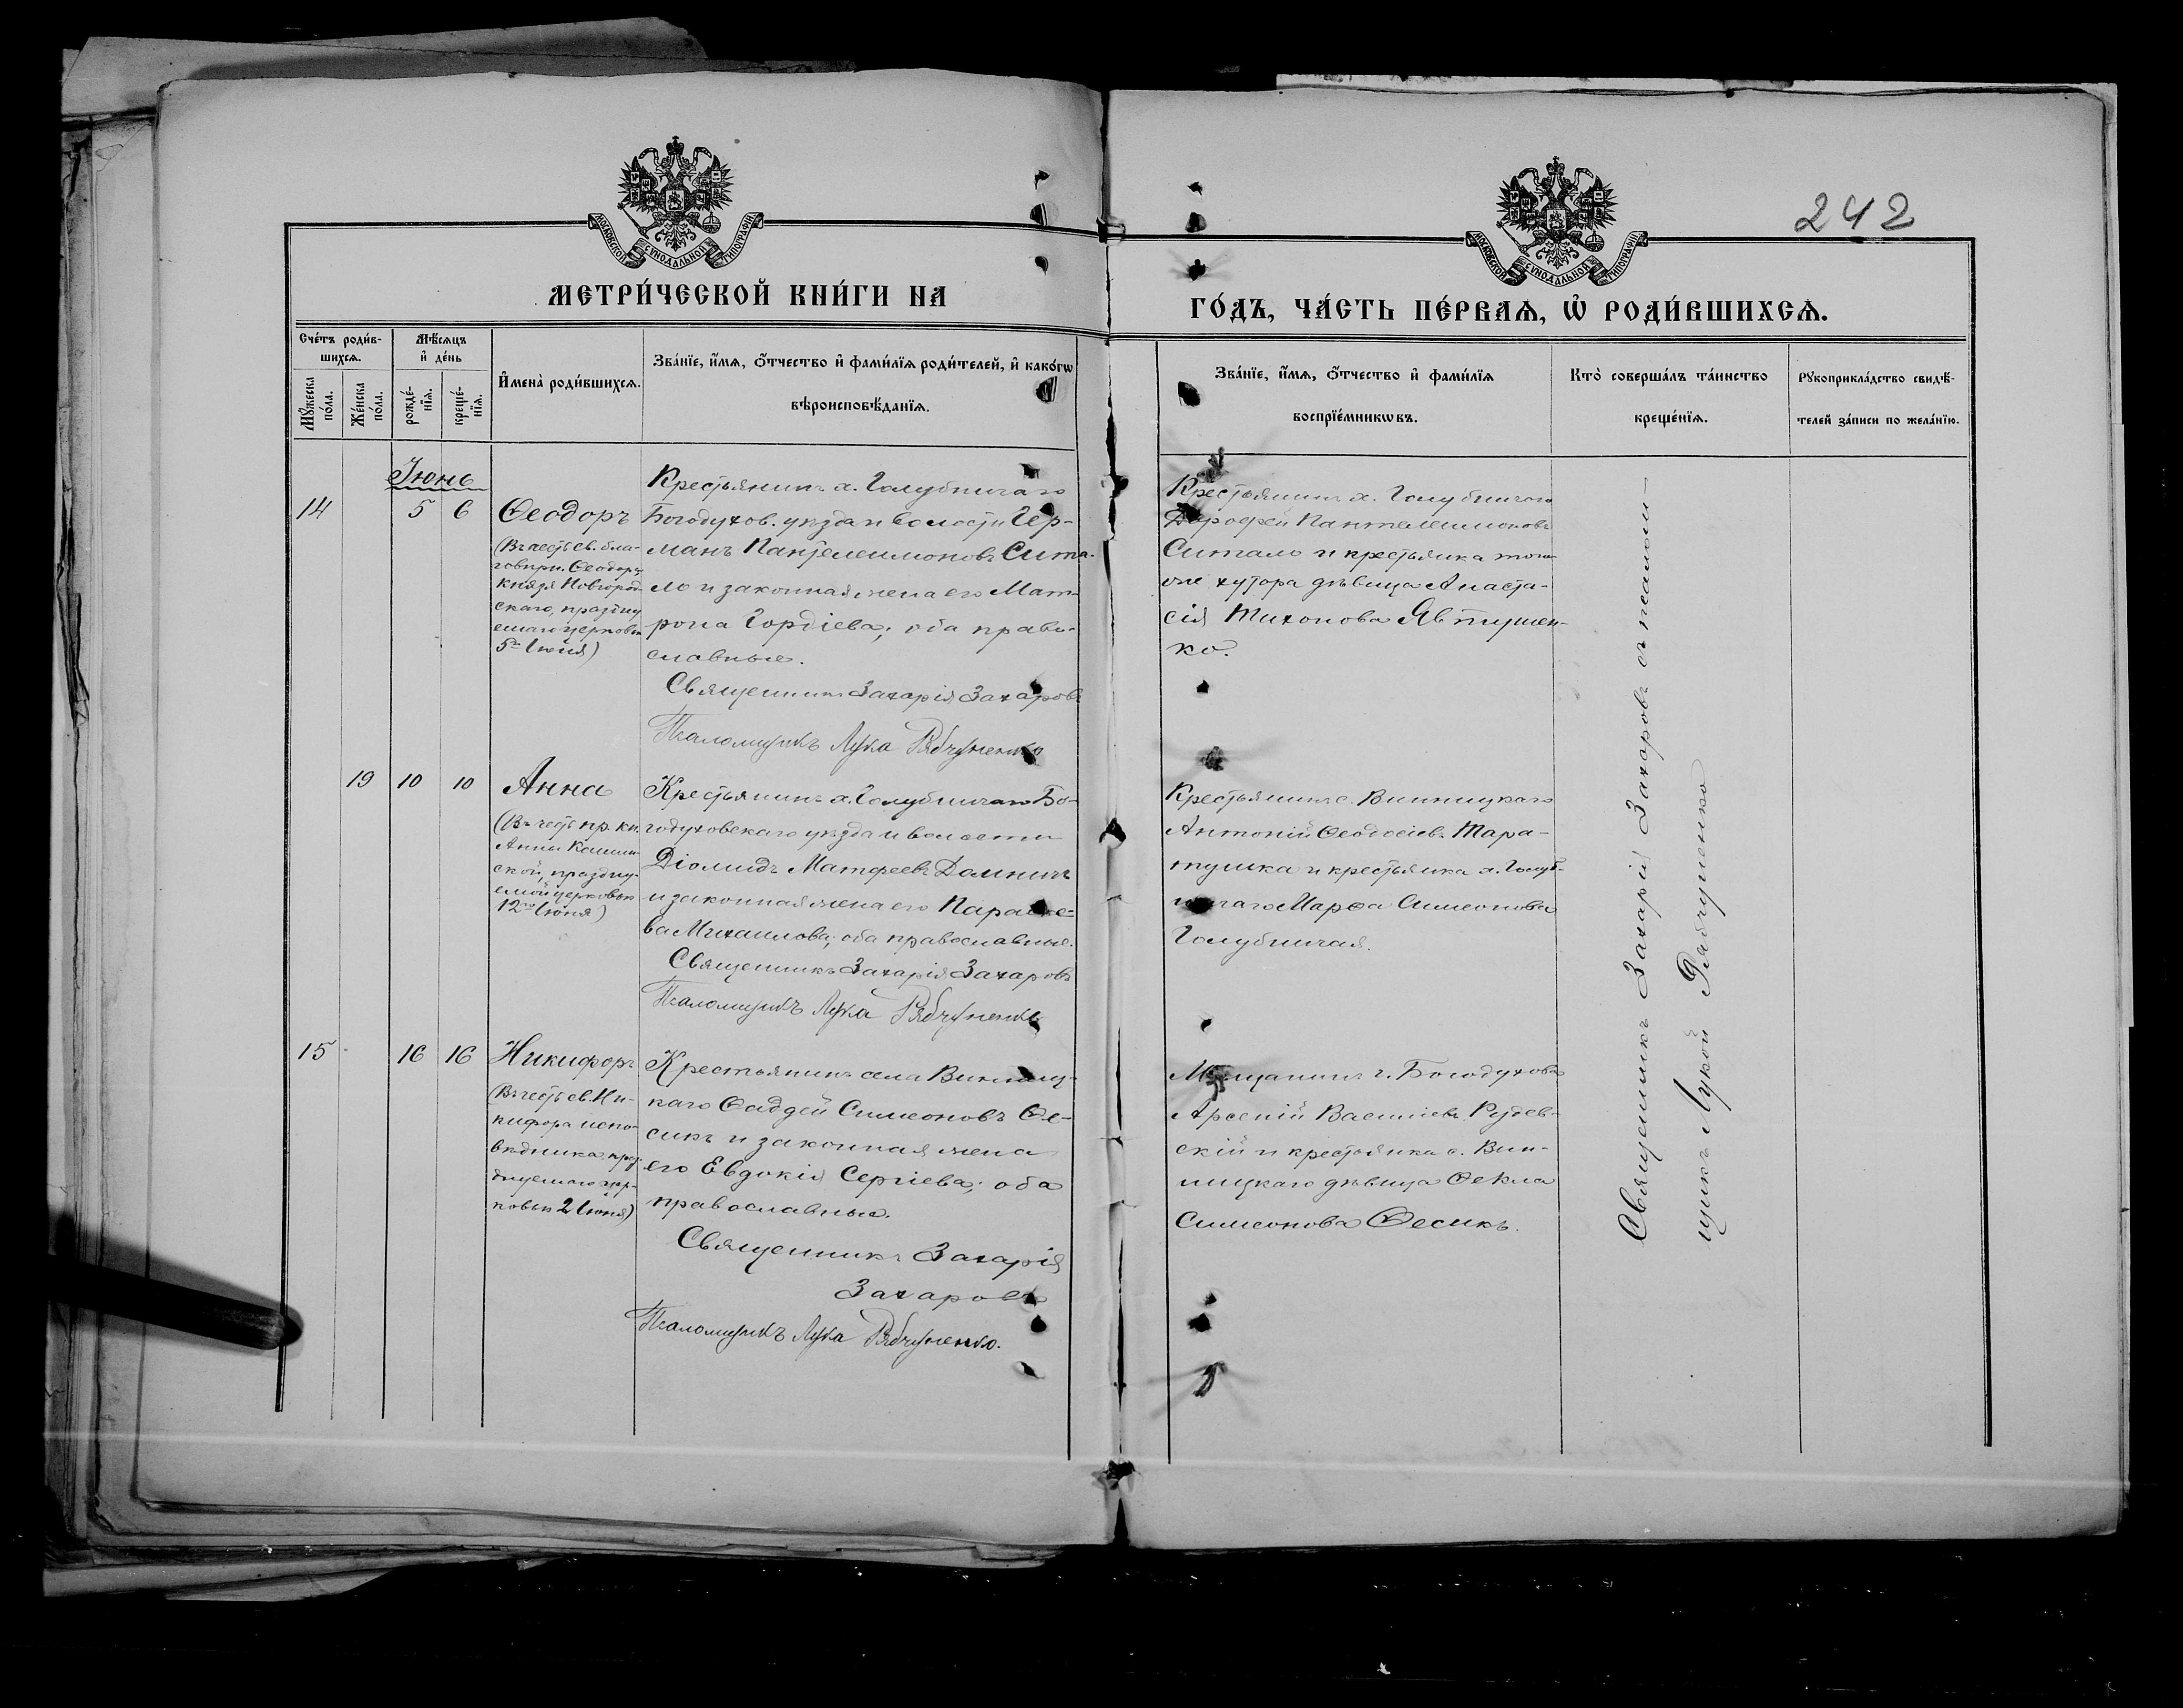 242
МОСКОВСКОЙ СѴНОДАЛЬНОЙ ТИПОГРАФІИ
МОСКОВСКОЙ СѴНОДАЛЬНОЙ ТИПОГРАФІИ
МЕТРИ́ЧЕСКОЙ КНИ́ГИ НА
ГО́ДЪ, ЧА́СТЬ ПЕ́РВАѦ, Ѡ҆ РОДИ́ВШИХСѦ.
Сче́тъ роди́в-
шихсѧ.
Мꙋ́жеска
по́ла.
Же́нска
по́ла.
Мѣ́сѧцъ
и҆ де́нь
рожде́-
нїѧ.
креще́-
нїѧ.
И҆мена̀ роди́вшихсѧ.
Зва́нїе, и҆́мѧ, ѻ҆́тчество и҆ фами́лїѧ роди́телей, и҆ како́гѡ
вѣроисповѣ́данїѧ.
Зва́нїе, и҆́мѧ, ѻ҆́тчество и҆ фами́лїѧ
воспрїе́мникѡвъ.
Кто̀ соверша́лъ та́инство
креще́нїѧ.
Рꙋкоприкла́дство свидѣ́-
телей за́писи по жела́нїю.
Іюнь
14 5 6
Ѳеодоръ
(Въ честь св. бла-
говѣрн. Ѳеодора,
князя Новгород-
скаго, праздну
емаго церковью
5го Іюня)
Крестьянинъ х. Голубничаго
Богодухов. уѣзда и волости Гер-
манъ Пантелеимоновъ Сита-
ло и законная жена его Мат-
рона Гордіева; оба право-
славные.
Священникъ Захарія Захаровъ
Псаломщикъ Лука Рябчуненко
Крестьянинъ х. Голубничаго
Дорофей Пантелеимоновъ
Ситало и крестьянка того
же хутора дѣвица Анаста-
сія Тихонова Явтушен-
ко.
19 10 10
Анна
(Въ честь пр. кн.
Анны Кашин-
ской, праздну-
емой церковью
12го Іюня)
Крестьянинъ х. Голубничаго Бо-
годуховскаго уѣзда и волости
Діомидъ Матфеевъ Домничъ
и законная жена его Параске-
ва Михаилова; оба православные.
Священникъ Захарія Захаровъ
Псаломщикъ Лука Рябчуненко
Крестьянинъ с. Винницкаго
Антоній Ѳеодосіевъ Тара-
тушка и крестьянка х. Голуб-
ничаго Марѳа Симеонова
Голубничая.
15 16 16
Никифоръ
(Въ честь св. Ни-
кифора испо-
вѣдника, праз-
днуемаго цер-
ковью 2 Іюня)
Крестьянинъ села Винниц-
каго Ѳаддей Симеоновъ Ѳе-
сикъ и законная жена
его Евдокія Сергіева; оба
православные.
Священникъ Захарія
Захаровъ
Псаломщикъ Лука Рябчуненко.
Мѣщанинъ г. Богодухова
Арсеній Василіевъ
скій и крестьянка с. Вин-
ницкаго дѣвица Ѳекла
Симеонова Ѳесикъ.
Священникъ Захарій Захаровъ съ псалом-
щикъ Лукой Рябчуненко